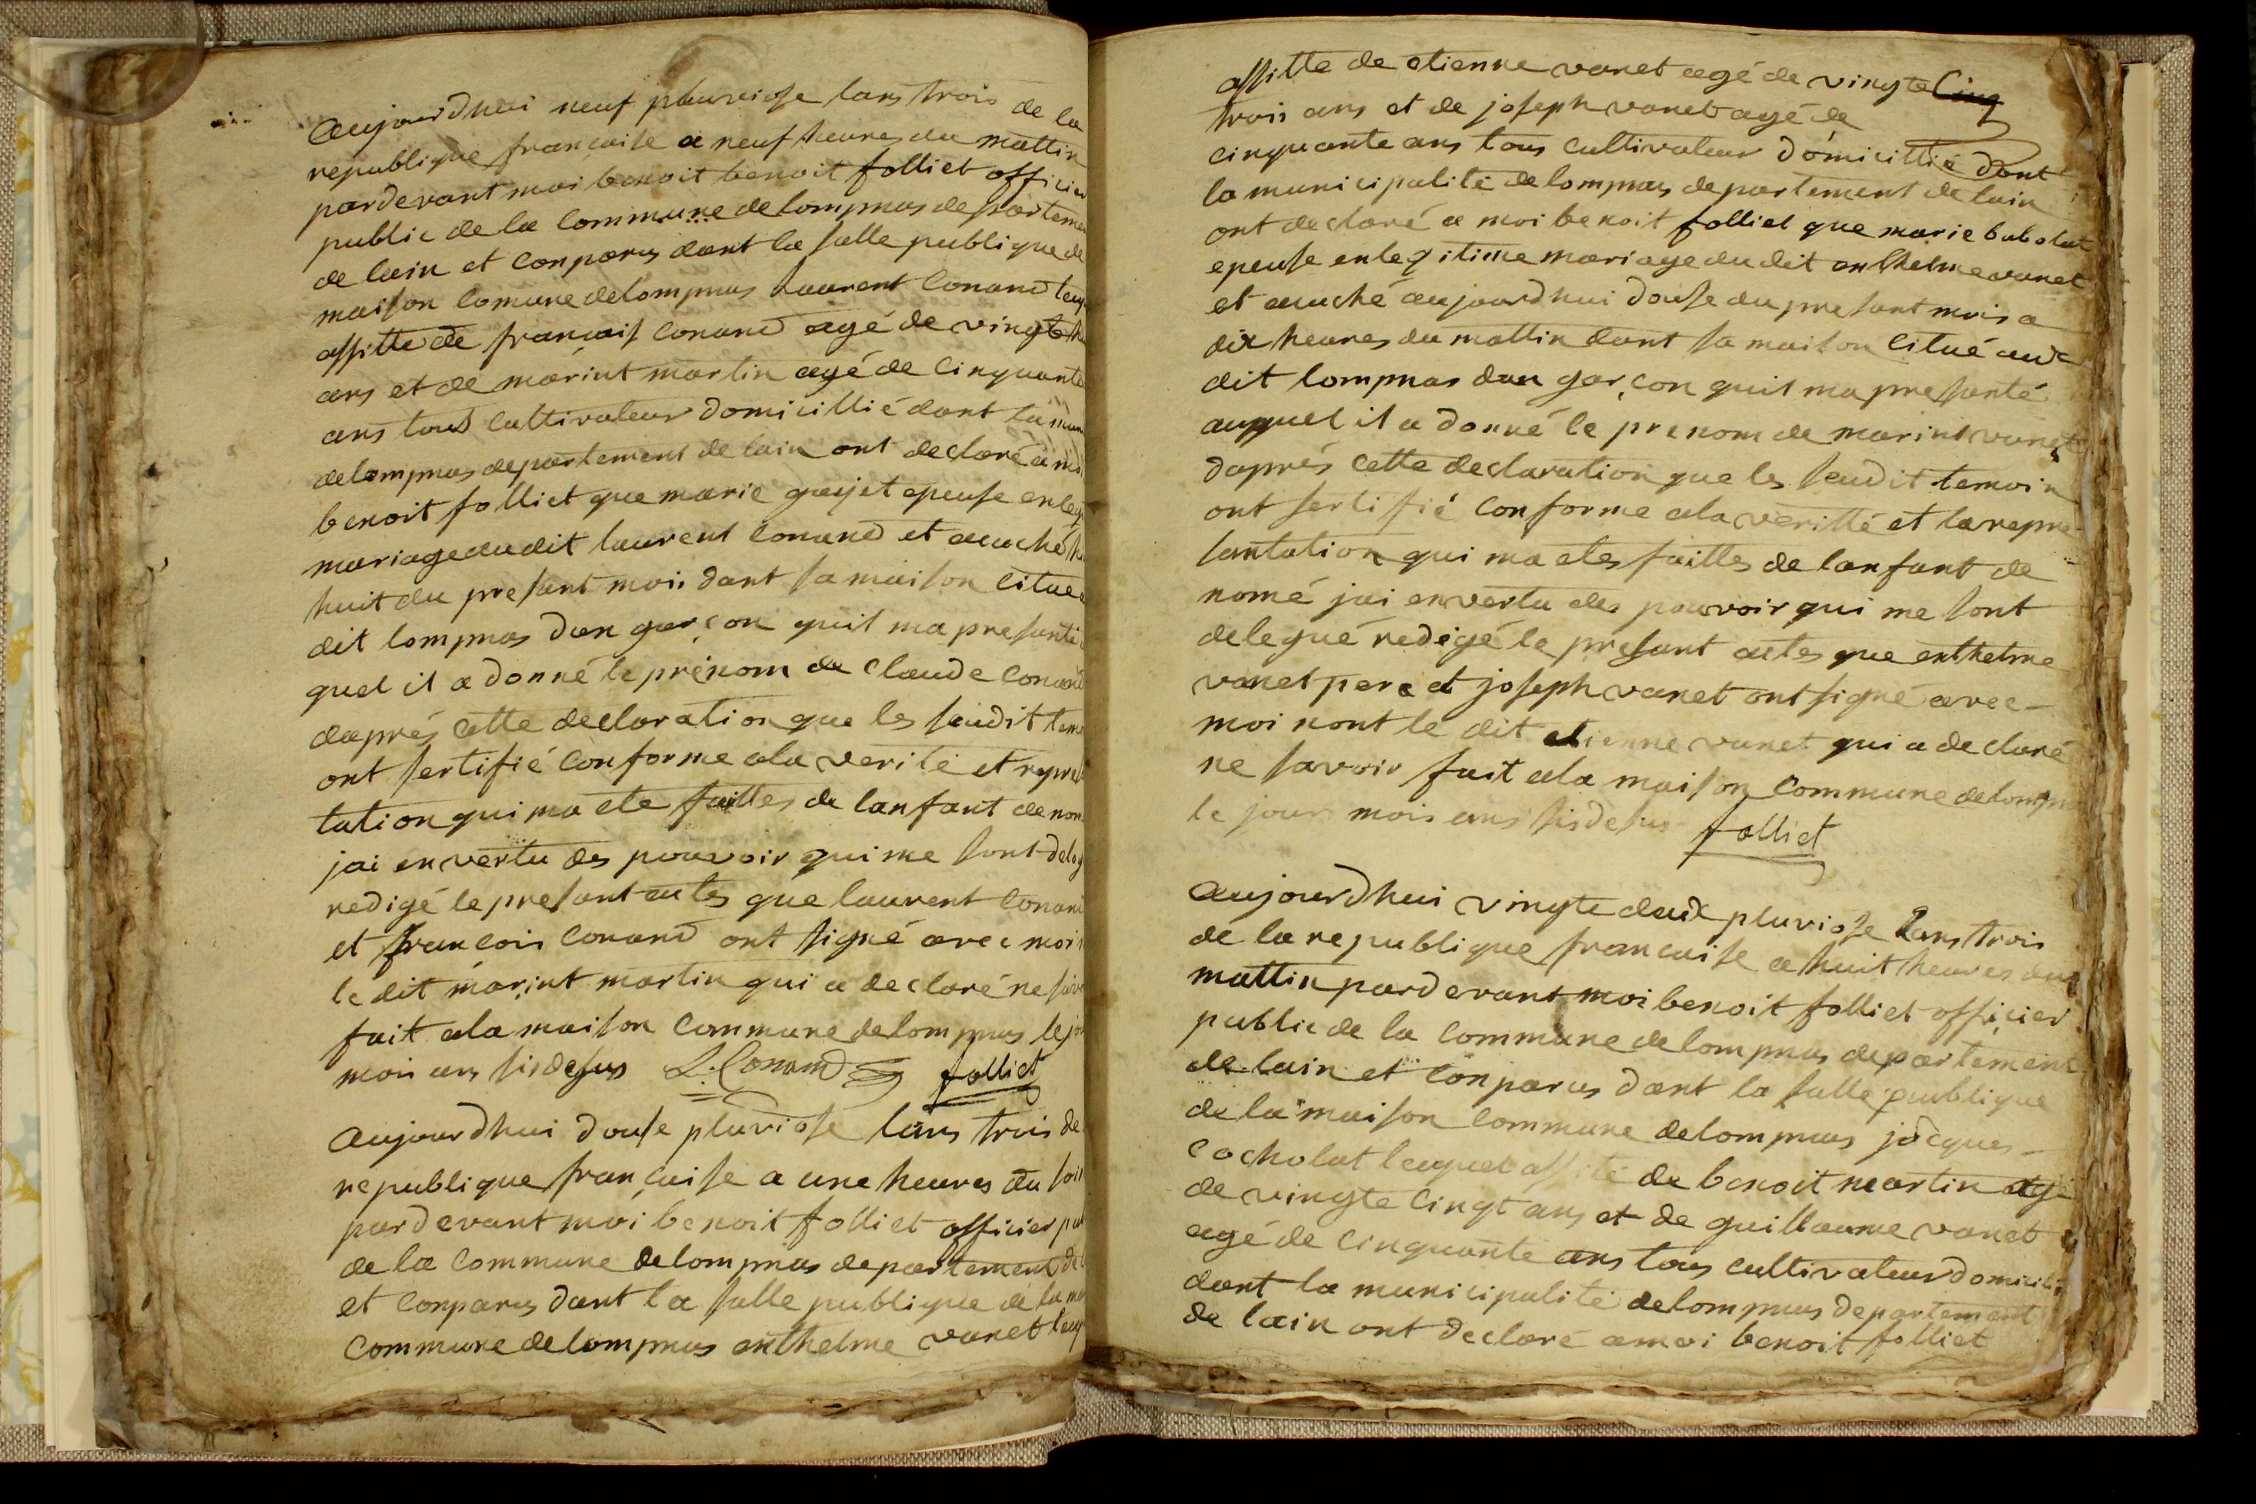 aujourdhui neuf pluviose lans trois de la
republique francaise a neuf heures du mattin
pardevant moi benoit benoit folliet officier
public de la Commune de lompnas departemen
de lain et Conparus dant la salle publique de
maison Comune delompnas Laurent Conand leq
assitte de francois Conand agé de vingte
ans et de marint martin agé de Cinquante
ans tous Cultivateur domicillié dant la mun
delompnas departement de lain ont declaré a moi
benoit folliet que marie epeuse en leg
mariage du dit laurent Conand et acuché
huit du presant mois dant sa maison Citué
dit lompnas dun garcon quil ma presanté
quel il a donné le prénom de Claude Conand
daprés cette declaration que les seudit tem
ont sertifié Conforme ala verité et repres
tation qui ma ete faittes de lanfant de nom
jai en vertu des pouvoir qui me sont deleg
redigé le presant actes que laurent Conand
et francois Conand ont signé avec moi
le dit marint martin qui a declaré ne sav
fait ala maison Commune delompnas le jou
mois ans sisdesus L. Conand folliet
aujourdhui douse pluviose lans trois de
republique francaise a une heures du soir
pardevant moi benoit folliet officier pu
de la Commune delompnas departement de
et Conparus dant la salle publique de la mai
Commune delompnas enthelme vanet leq
assitte de etienne vanet agé de vingte Cinq
trois ans et de joseph vanet agé de
cinquante ans tous Cultivateur domicillié dant
la municipalité delompnas departement de lain
ont declaré a moi benoit folliet que marie
epeuse en legitime mariage du dit enthelme vanet
et acuché aujourdhui douse du presant mois a
dix heures du mattin dant sa maison Citué aux
dit lompnas dun garçon quil ma presanté
auquel il a donné le prenom de marint vanet
daprés Cette declaration que les seudit temoin
ont sertifié Conforme ala veritté et la repre
santation qui ma etes faittes de lanfant de
nomé jai en vertu des pouvoir qui me sont
delegué redigé le presant actes que enthelme
vanet pere et joseph vanet ont signé avec
moi nont le dit etienne vanet qui a declaré
ne savoir fait ala maison Commune delompn
le jour mois ans sisdesus folliet
aujourdhui vingte deux pluviose Lans trois
de la republique francaise a huit heures du
mattin pardevant moi benoit folliet officier
public de la Commune delompnas departement
de lain et Conparus dant la salle publique
de la maison Commune delompnas jacques
Cocholat lequel assité de benoit martin agé
de vingte Cinqt ans et de guillaume vanet
agé de Cinquante ans tous Cultivateur domicili
dant la municipalité delompnas departement
de lain ont declaré amoi benoit folliet